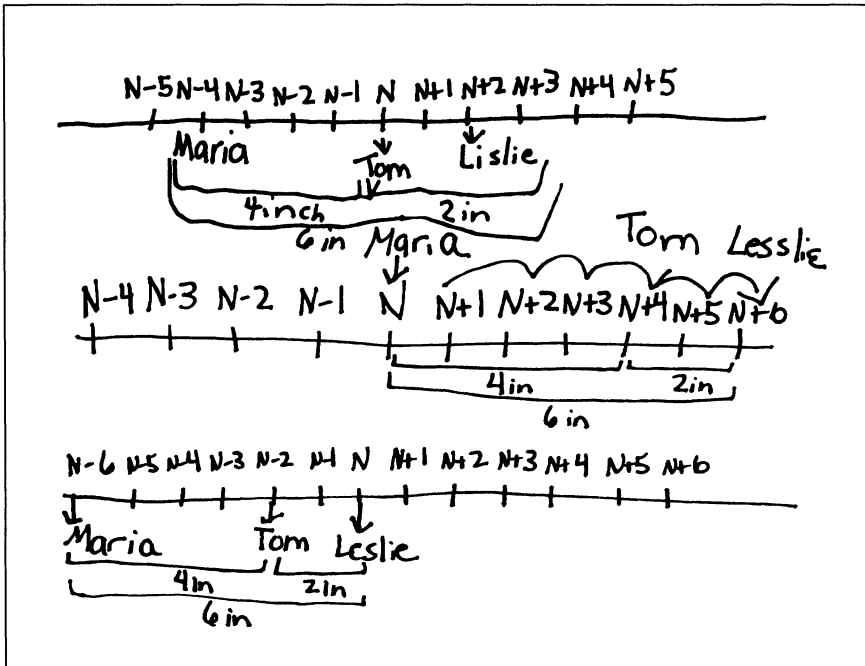 N-5 N-4 N-3 N-2 N-1 N N+1 N+2 N+3 N+4 N+5
Maria Tom Lislie
4inch 2 in
6 in
Maria Tom Lesslie
N-4 N-3 N-2 N-1 N N+1 N+2 N+3 N+4 N+5 N+6
4in 2in
6 in
N-6 N-5 N-4 N-3 N-2 N-1 N N+1 N+2 N+3 N+4 N+5 N+6
Maria Tom Leslie
4in 2in
6 in